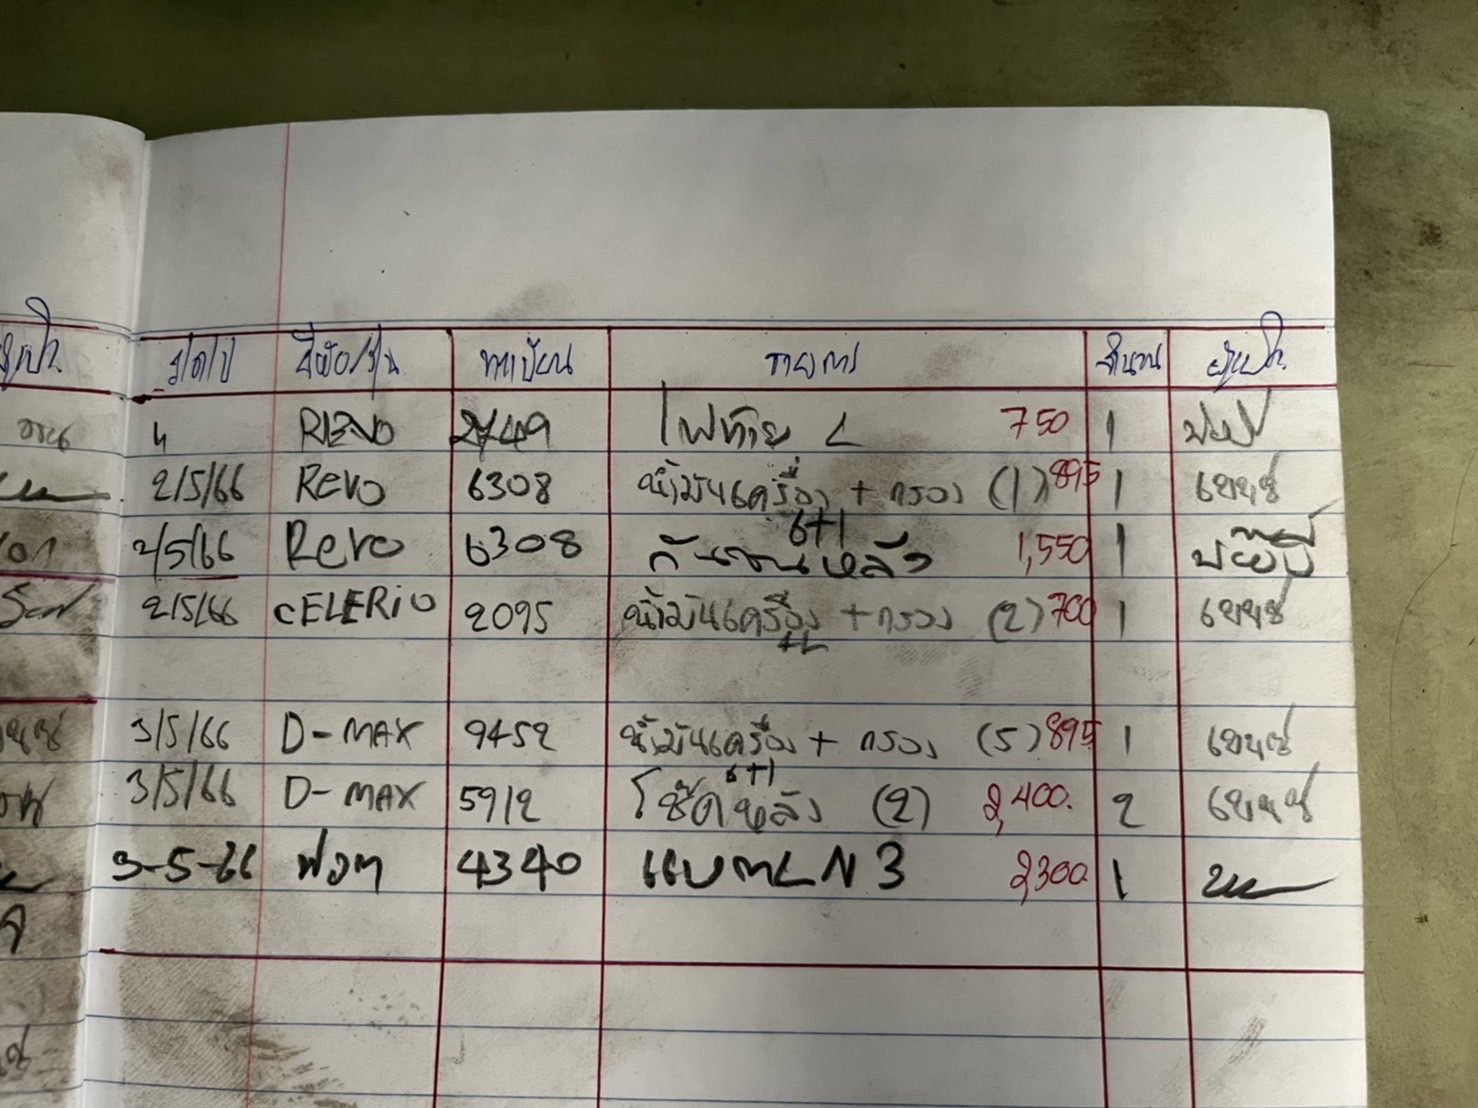 ว/ด/ป ยี่ห้อ/รุ่น ทะเบียน รายการ จำนวน ผู้เบิก
4 REVO 2749 ไฟท้าย L 750 1
2/5/66 Revo 6308 น้ำมันเครื่อง + กรอง (1) 895 1 เชนซ์
6+1
2/5/66 Revo 6308 กันชนหลัง 1,550 1
2/5/66 CELERIO 2095 น้ำมันเครื่อง + กรอง (2) 700 1 เชนซ์
4L
3/5/66 D-MAX 9452 น้ำมันเครื่อง + กรอง (5) 895 1 เชนซ์
6+1
3/5/66 D-MAX 5912 โช้คหลัง (2) 2,400. 2 เชนซ์
3-5-66 ฟอด 4340 แบตLN3 2300 1